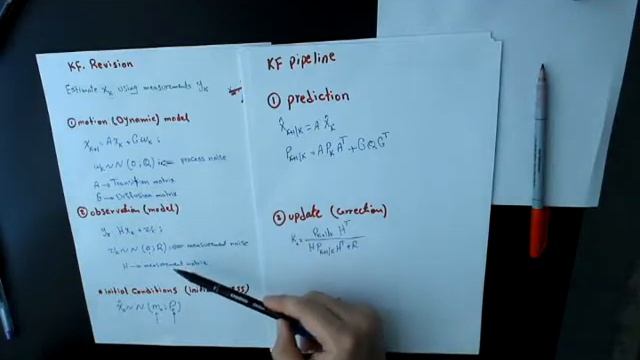 KF. Revision
Estimate x_k using measurements y_k
① motion (Dynamic) model
x_{k+1} = A x_k + G w_k ;
w_k ~ N (0, Q) ⇐ process noise
A → Transition matrix
G → Diffusion matrix
② observation (model)
y_k H x_k + v_k ;
v_k ~ N (0, R) measurement noise
H → measurement matrix
• initial Conditions (initial guess)
KF pipeline
① prediction
x̂_{k+1/k} = A x̂_k
P_{k+1/k} = A P_k A^T + G Q G^T
② update (correction)
H^T